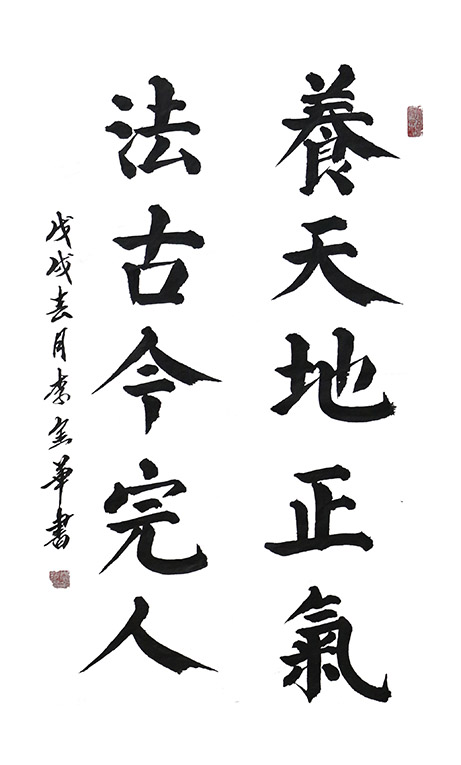 養天地正氣
法古今完人
戊戌春月李金華書